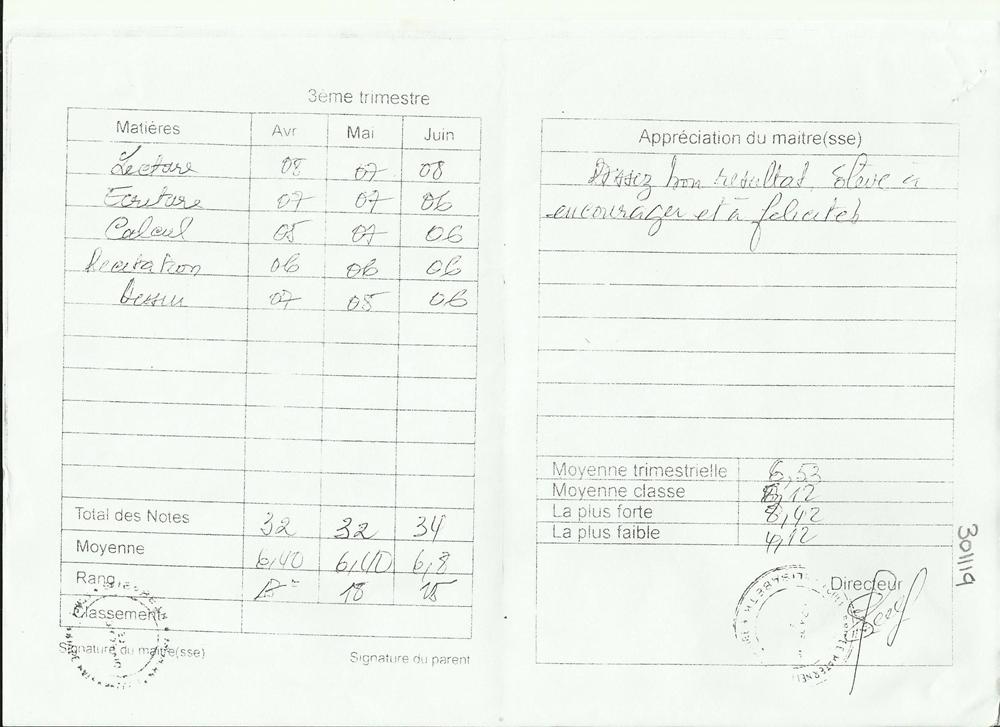 3ème trimestre
Matières Avr Mai Juin
Lecture 08 07 08
Ecriture 07 07 06
Calcul 05 07 06
Recitation 06 06 06
Dessin 07 05 06
Total des Notes 32 32 34
Moyenne 6,40 6,40 6,8
Rang 18 15
Classement
Signature du maitre(sse) Signature du parent
Appréciation du maitre(sse)
Assez bon resultat Elève à
encourager et à feliciter
Moyenne trimestrielle 6,53
Moyenne classe 6,12
La plus forte 8,42
La plus faible 4,12
Directeur
301119